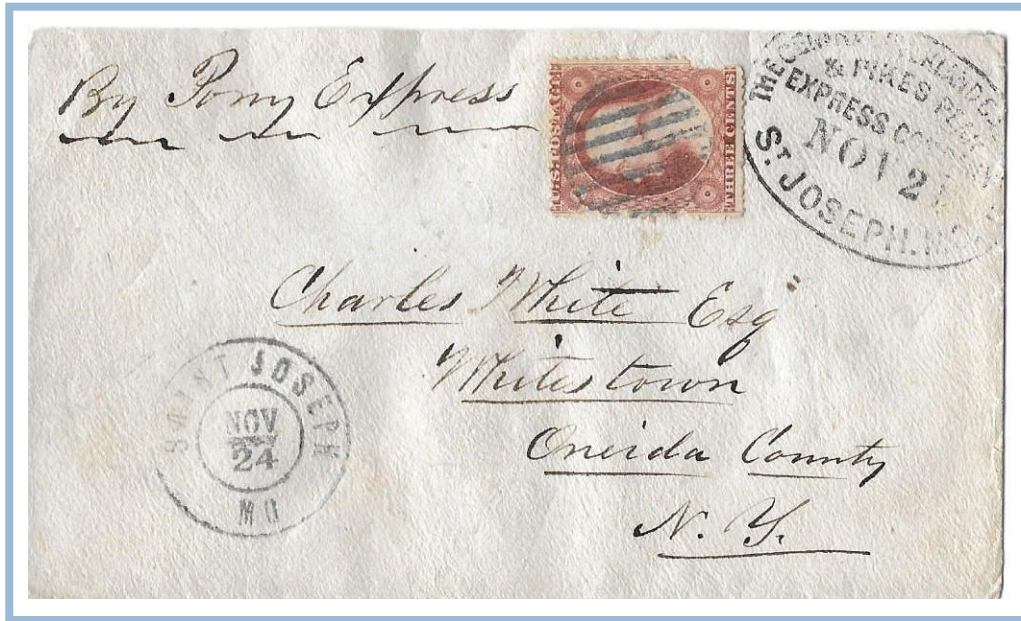 By Pony Express
U.S. POSTAGE
THREE CENTS
THE
& PIKES PEAK
EXPRESS COMPANY
NOV 2
ST. JOSEPH. MO
Charles White Esq
Whitestown
Oneida County
N. Y.
SAINT JOSEPH
NOV
24
MO